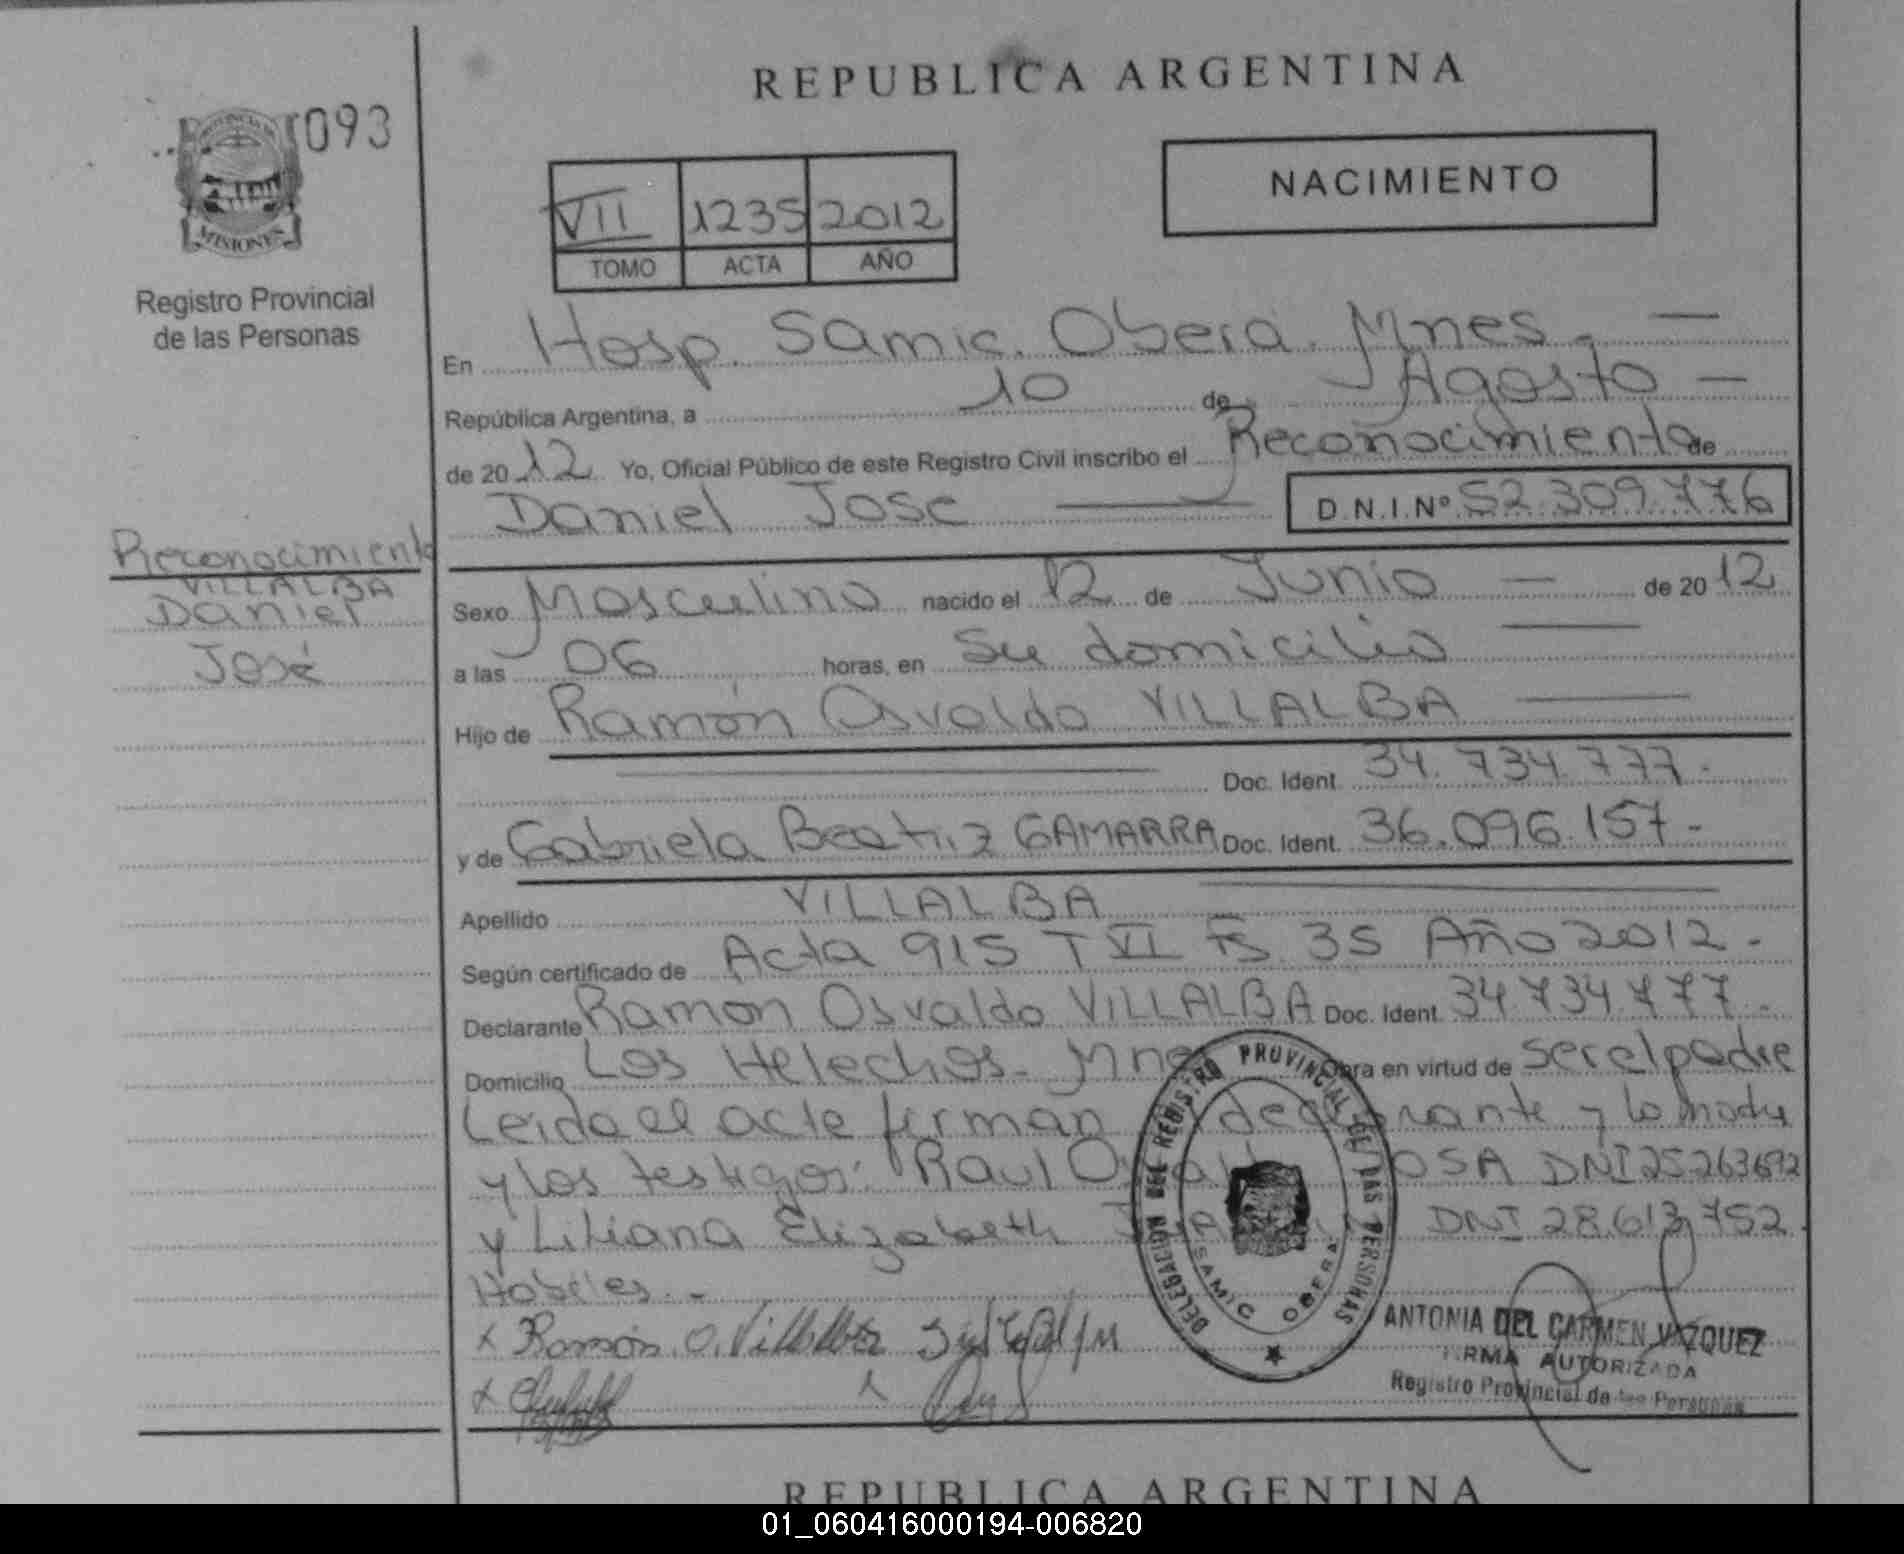 REPUBLICA ARGENTINA
093
NACIMIENTO
VII 1235 2012
TOMO ACTA AÑO
MISIONES
Registro Provincial
de las Personas
En Hosp. Samic. Obera. Mnes. —
República Argentina, a 10 de Agosto —
de 2012 Yo, Oficial Público de este Registro Civil inscribo el Reconocimiento de
Daniel Jose — D.N.I.Nº 52.309.776
Reconocimiento
VILLALBA
Daniel
José
Sexo Masculino nacido el 12 de Junio — de 2012
a las 06 horas, en Su domicilio —
Hijo de Ramón Osvaldo VILLALBA —
Doc. Ident. 34.734.777.-
y de Gabriela Beatriz GAMARRA Doc. Ident. 36.096.157.-
Apellido VILLALBA —
Según certificado de Acta 915 T VI Fs 35 Año 2012.-
Declarante Ramon Osvaldo VILLALBA Doc. Ident. 34.734.777.-
Domicilio Los Helechos. Mnes Obra en virtud de ser el padre
Leida el acta firman declarante y la madre
y los testigos: Raul DNI 25263692
y Liliana Elizabeth DNI 28.613.752.
Habiles.-
x Ramón O. Villalba
x x
DELEGACION DEL REGISTRO PROVINCIAL DE LAS PERSONAS
SAMIC OBERA
ANTONIA DEL CARMEN VAZQUEZ
FIRMA AUTORIZADA
Registro Provincial de las Personas
REPUBLICA ARGENTINA
01_060416000194-006820